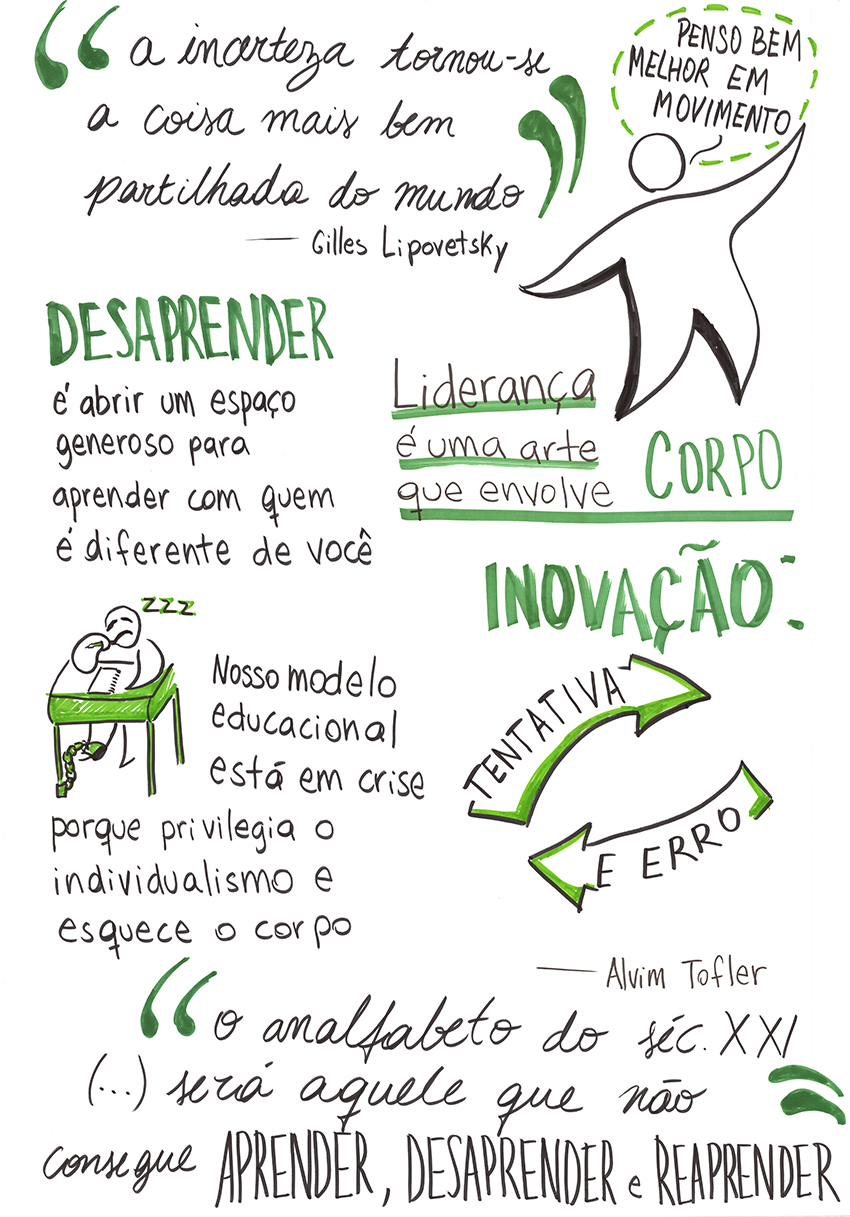 “ a incerteza tornou-se
a coisa mais bem
partilhada do mundo ”
— Gilles Lipovetsky
PENSO BEM
MELHOR EM
MOVIMENTO
DESAPRENDER
é abrir um espaço
generoso para
aprender com quem
é diferente de você
Liderança
é uma arte
que envolve CORPO
zzz
Nosso modelo
educacional
está em crise
porque privilegia o
individualismo e
esquece o corpo
INOVAÇÃO:
TENTATIVA
E ERRO
— Alvim Tofler
“ o analfabeto do séc. XXI
(...) será aquele que não
consegue APRENDER, DESAPRENDER e REAPRENDER ”